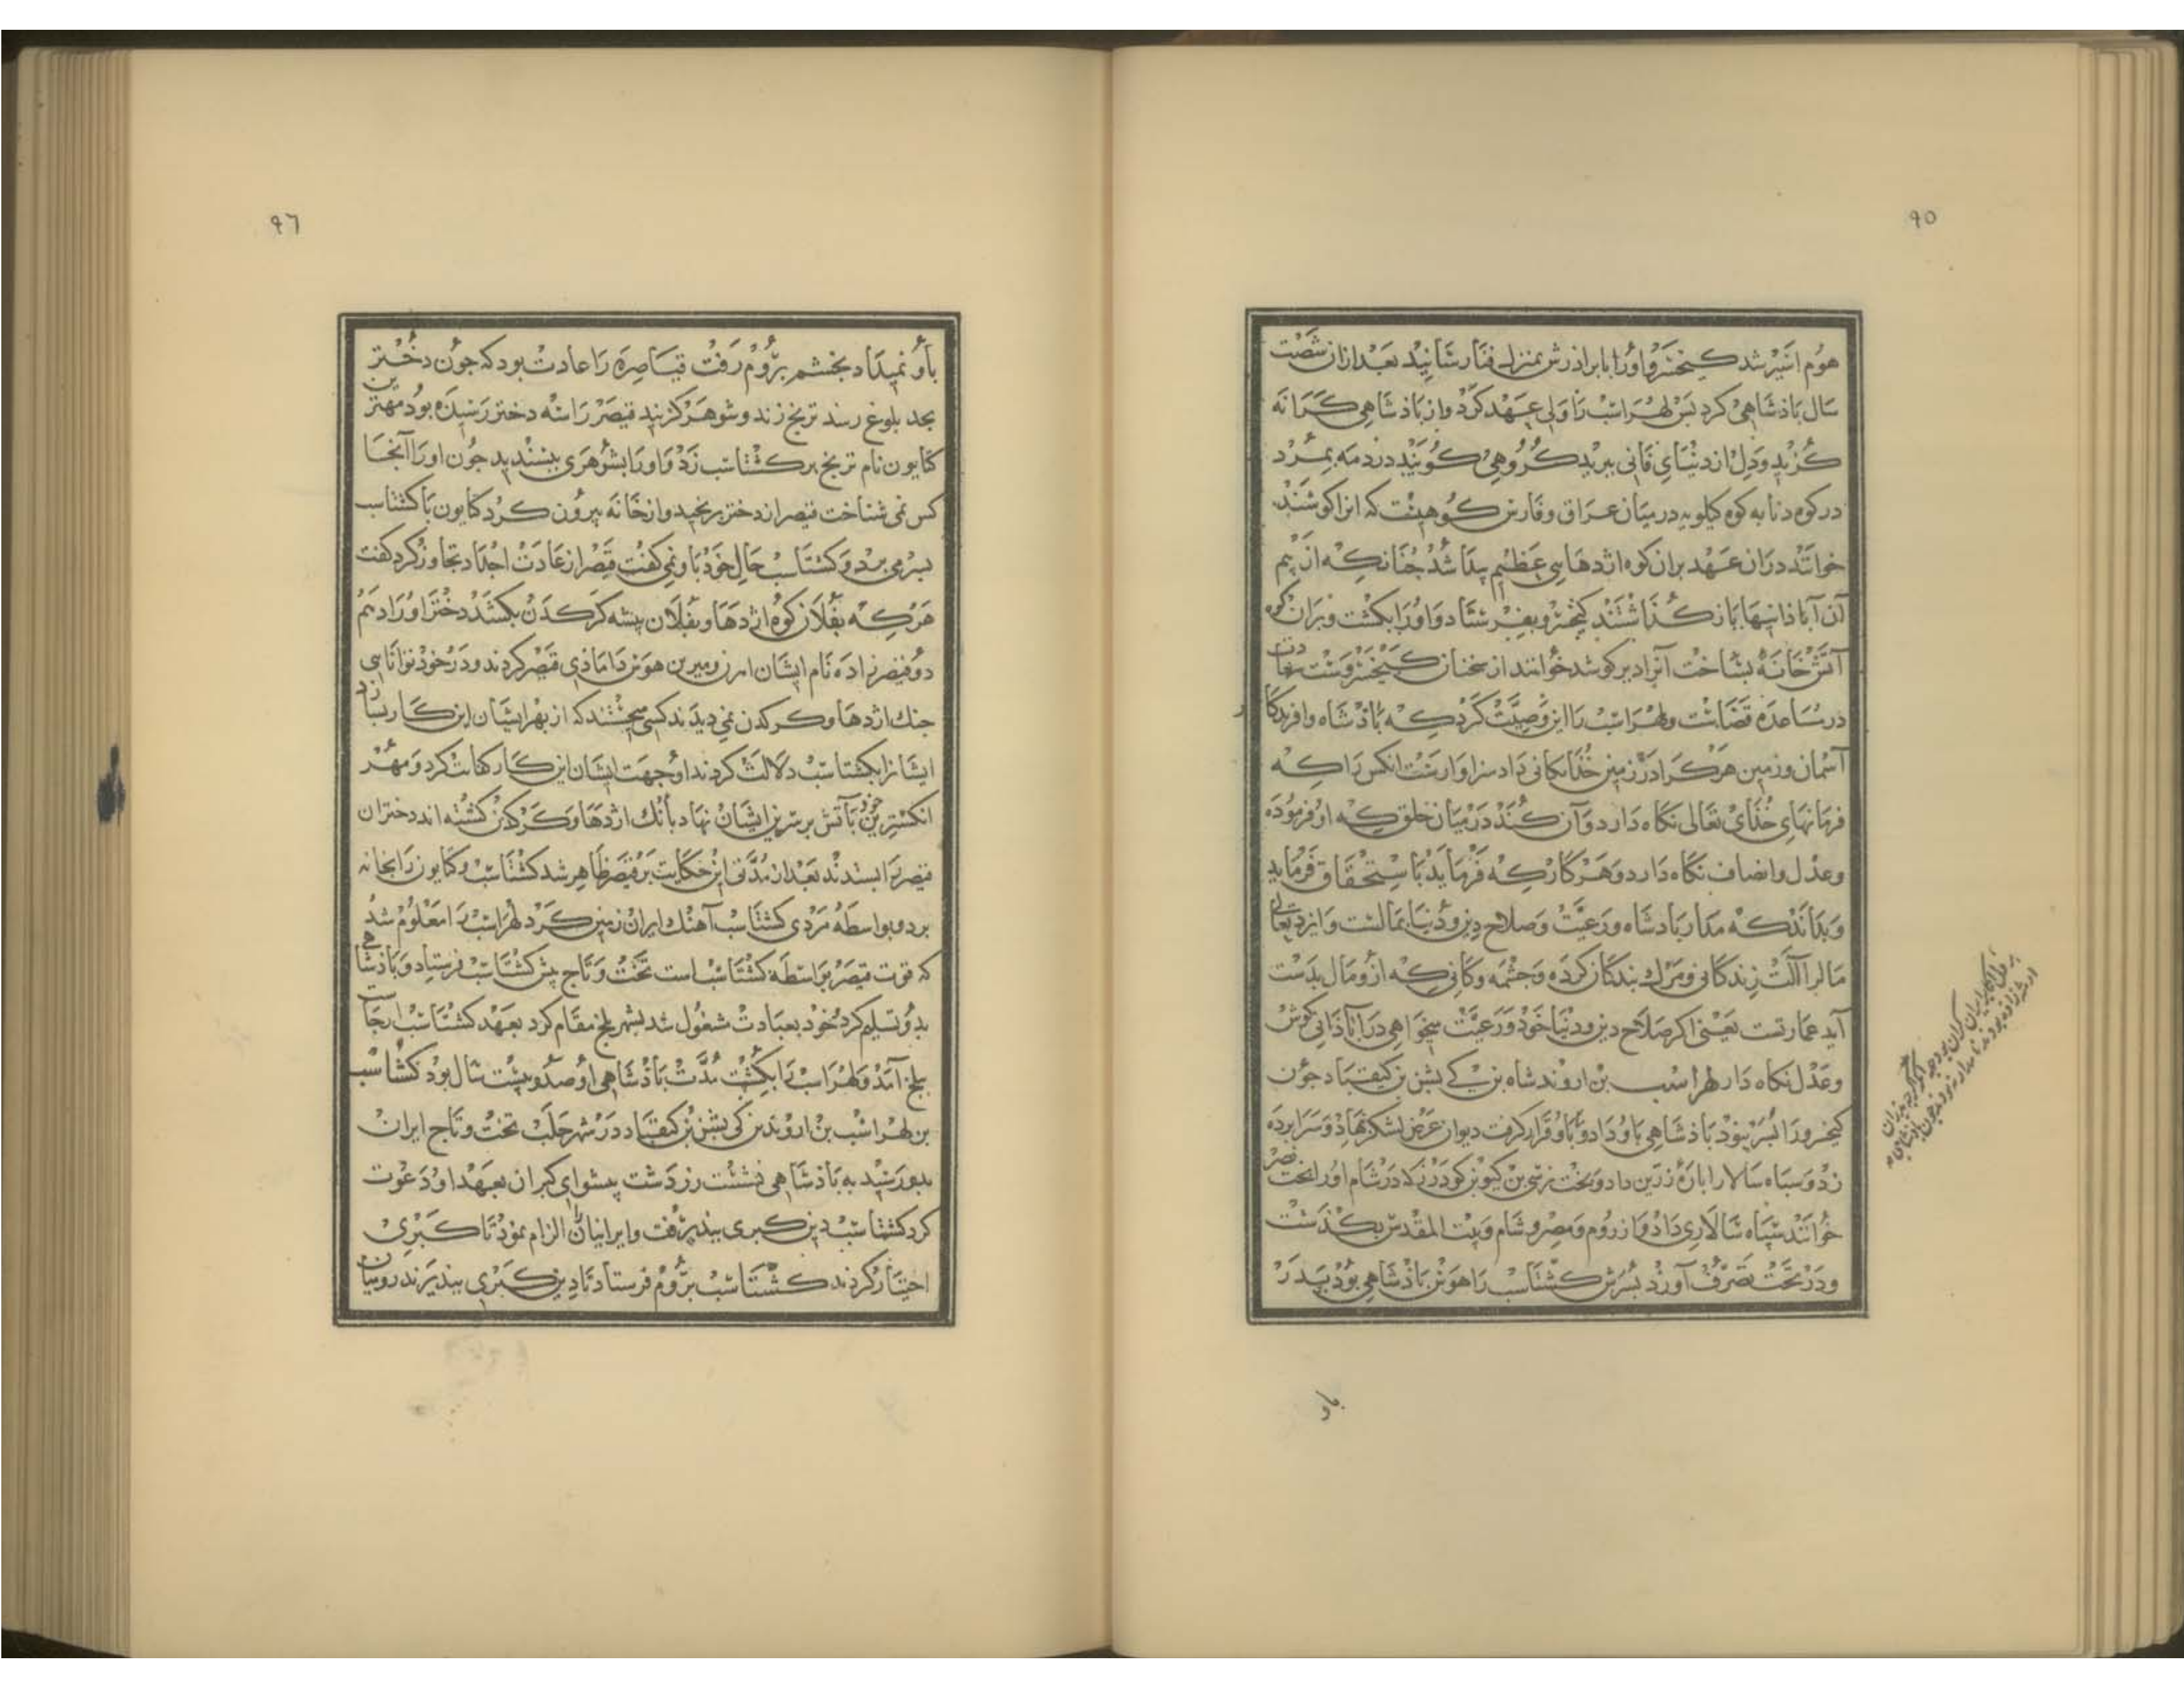 ٩٥
هوم اسیر شد کیخسرو او را با برادرش بمنزل فنا رسانید بعد از آن شصت
سال باذشاهی کرد پس لهراسب را ولی عهد کرد و از باذشاهی کرانه
کزید و دل از دنیای فانی ببرید کروهی کویند در دمه بمرد
در کوه دنا به کوه کیلویه در میان عراق و فارس کوهیست که انرا کوشید
خوانند در آن عهد بر ان کوه اژدهایی عظیم پیدا شد چنانکه از بیم
آن آباذانیها باز کذاشتند کیخسرو بفرستاد و او را بکشت و بر ان کوه
آتش خانه بساخت آنرا دیر کوشید خوانند از سخنان کیخسروست سعادت
در مساعده قضاست و لهراسب را این وصیت کرد که باذشاه و افریدکار
آسمان و زمین هر کرا در زمین خدایکانی داد سزاوارست انکس را که
فرمانهای خذای تعالی نکاه دارد و آن کند در میان خلق که او فرموده
وعدل وانصاف نکاه دارد و هر کار که فرماید باستحقاق فرماید
و بداند که مدار بادشاه و رعیت و صلاح دین و دنیا بمالست و ایزد تعالی
مالرا آلت زندکانی و مرک بندکان کرده و چشمه و کانی که ازو مال بدست
آید عمارتست یعنی اکر صلاح دین و دنیا خود و رعیت میخواهی در آباذانی کوش
وعدل نکاه دار لهراسب بن اروند شاه بن کی بشن بن کیقباد جون
کیخسرو را پسر نبود باذشاهی باو داد و باو قرار کرفت دیوان عرض لشکر نهاذ و سرابرده
زد و سپاه سالار را باره زرین داد و بخت نرسی بن کیو بن کودرز که در شام او را بخت نصر
خوانند سپاه سالاری داد و از روم و مصر و شام و بیت المقدس بکذشت
و در تحت تصرف آورد پسرش کشتاسب را هوس باذشاهی بود پدر
باو
٩٦
باو نمیداد بخشم بروم رفت قیاصره را عادت بود که جون دختر
بحد بلوغ رسد ترنج زند و شوهر کزیند قیصر را سه دختر رسیده بود مهترین
کتایون نام ترنج بر کشتاسب زد و او را بشوهری بپسندید جون او را آنجا
کس نمی شناخت قیصر از دختر برنجید و از خانه بیرون کرد کتایون با کشتاسب
بسر می برد و کشتاسب حال خود باو نمی کفت قیصر از عادت اجداد تجاوز کرد کفت
هر که بفلان کوه اژدها و بفلان بیشه کرکدن بکشد دختر او را دهم
دو قیصر زاده نام ایشان اهرن و میرین هوس دامادی قیصر کردند و در خود توانایی
جنک اژدها و کرکدن نمی دیدند کسی میجستند که از بهر ایشان این کار بسازد
ایشانرا بکشتاسب دلالت کردند او جهت ایشان این کار کفایت کرد و مهر
انکشترین خود بآتش بر سرین ایشان نهاد بآنک اژدها و کرکدن کشته اند دختران
قیصر را بستدند بعد از مدتی این حکایت بر قیصر ظاهر شد کشتاسب و کتایون را بخانه
برد و بواسطه مردی کشتاسب آهنک ایران زمین کرد لهراسب را معلوم شد
که قوت قیصر بواسطه کشتاسب است تخت و تاج پیش کشتاسب فرستاد و باذشاهی
بدو تسلیم کرد خود بعبادت مشغول شد بشهر بلخ مقام کرد بعهد کشتاسب ارجاسب
ببلخ آمد و لهراسب را بکشت مدت باذشاهی او صد و بیست سال بود کشتاسب
بن لهراسب بن اروند بن کی بشن بن کیقباد در شهر حلب تخت و تاج ایران
بدو رسید به باذشاهی نشست زردشت پیشوای کبران بعهد او دعوت
کرد کشتاسب دین کبری بپذیرفت و ایرانیان را الزام نمود تا کبری
اختیار کردند کشتاسب بروم فرستاد تا دین کبری بپذیرند رومیان